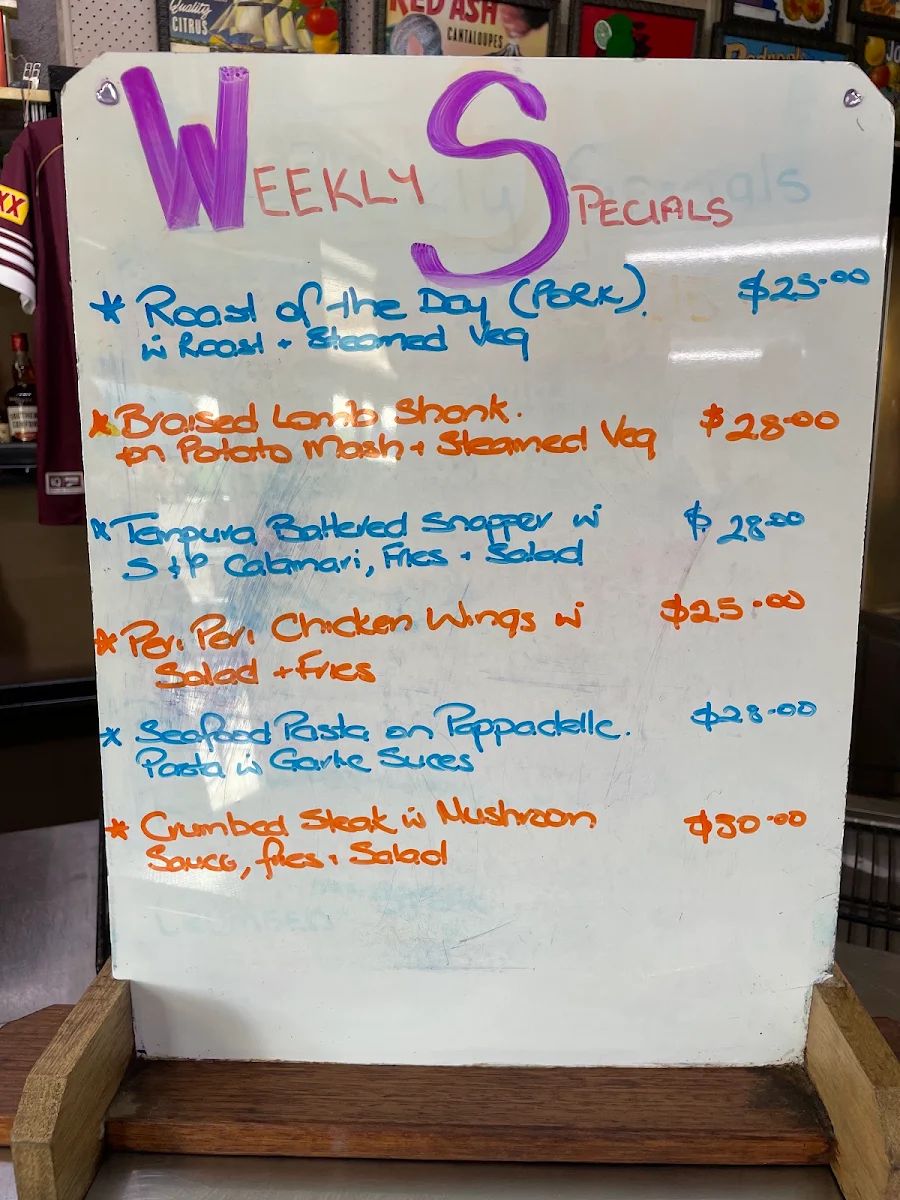 Quality
CITRUS
RED ASH
CANTALOUPES
XX
WEEKLY SPECIALS
* Roast of the Day (PORK). $25.00
w Roast + Steamed Veg
* Braised Lamb Shank. $28.00
on Potato Mash + Steamed Veg
* Tempura Battered Snapper w $28.00
S+P Calamari, Fries + Salad
* Peri Peri Chicken Wings w $25.00
Salad + Fries
* Seafood Pasta on Pappadelle. $28.00
Pasta w Garlic Suces
* Crumbed Steak w Mushroom $30.00
Sauce, fries + Salad